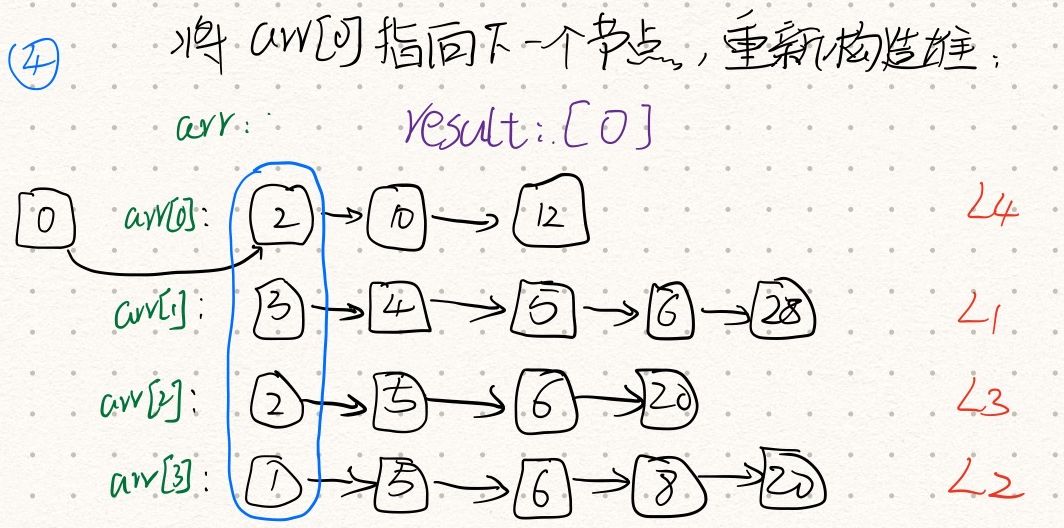 ④ 将 arr[0] 指向下一个节点，重新构造堆：
arr: result: [0]
0 arr[0]: 2 → 10 → 12 L4
arr[1]: 3 → 4 → 5 → 6 → 28 L1
arr[2]: 2 → 5 → 6 → 20 L3
arr[3]: 1 → 5 → 6 → 8 → 20 L2